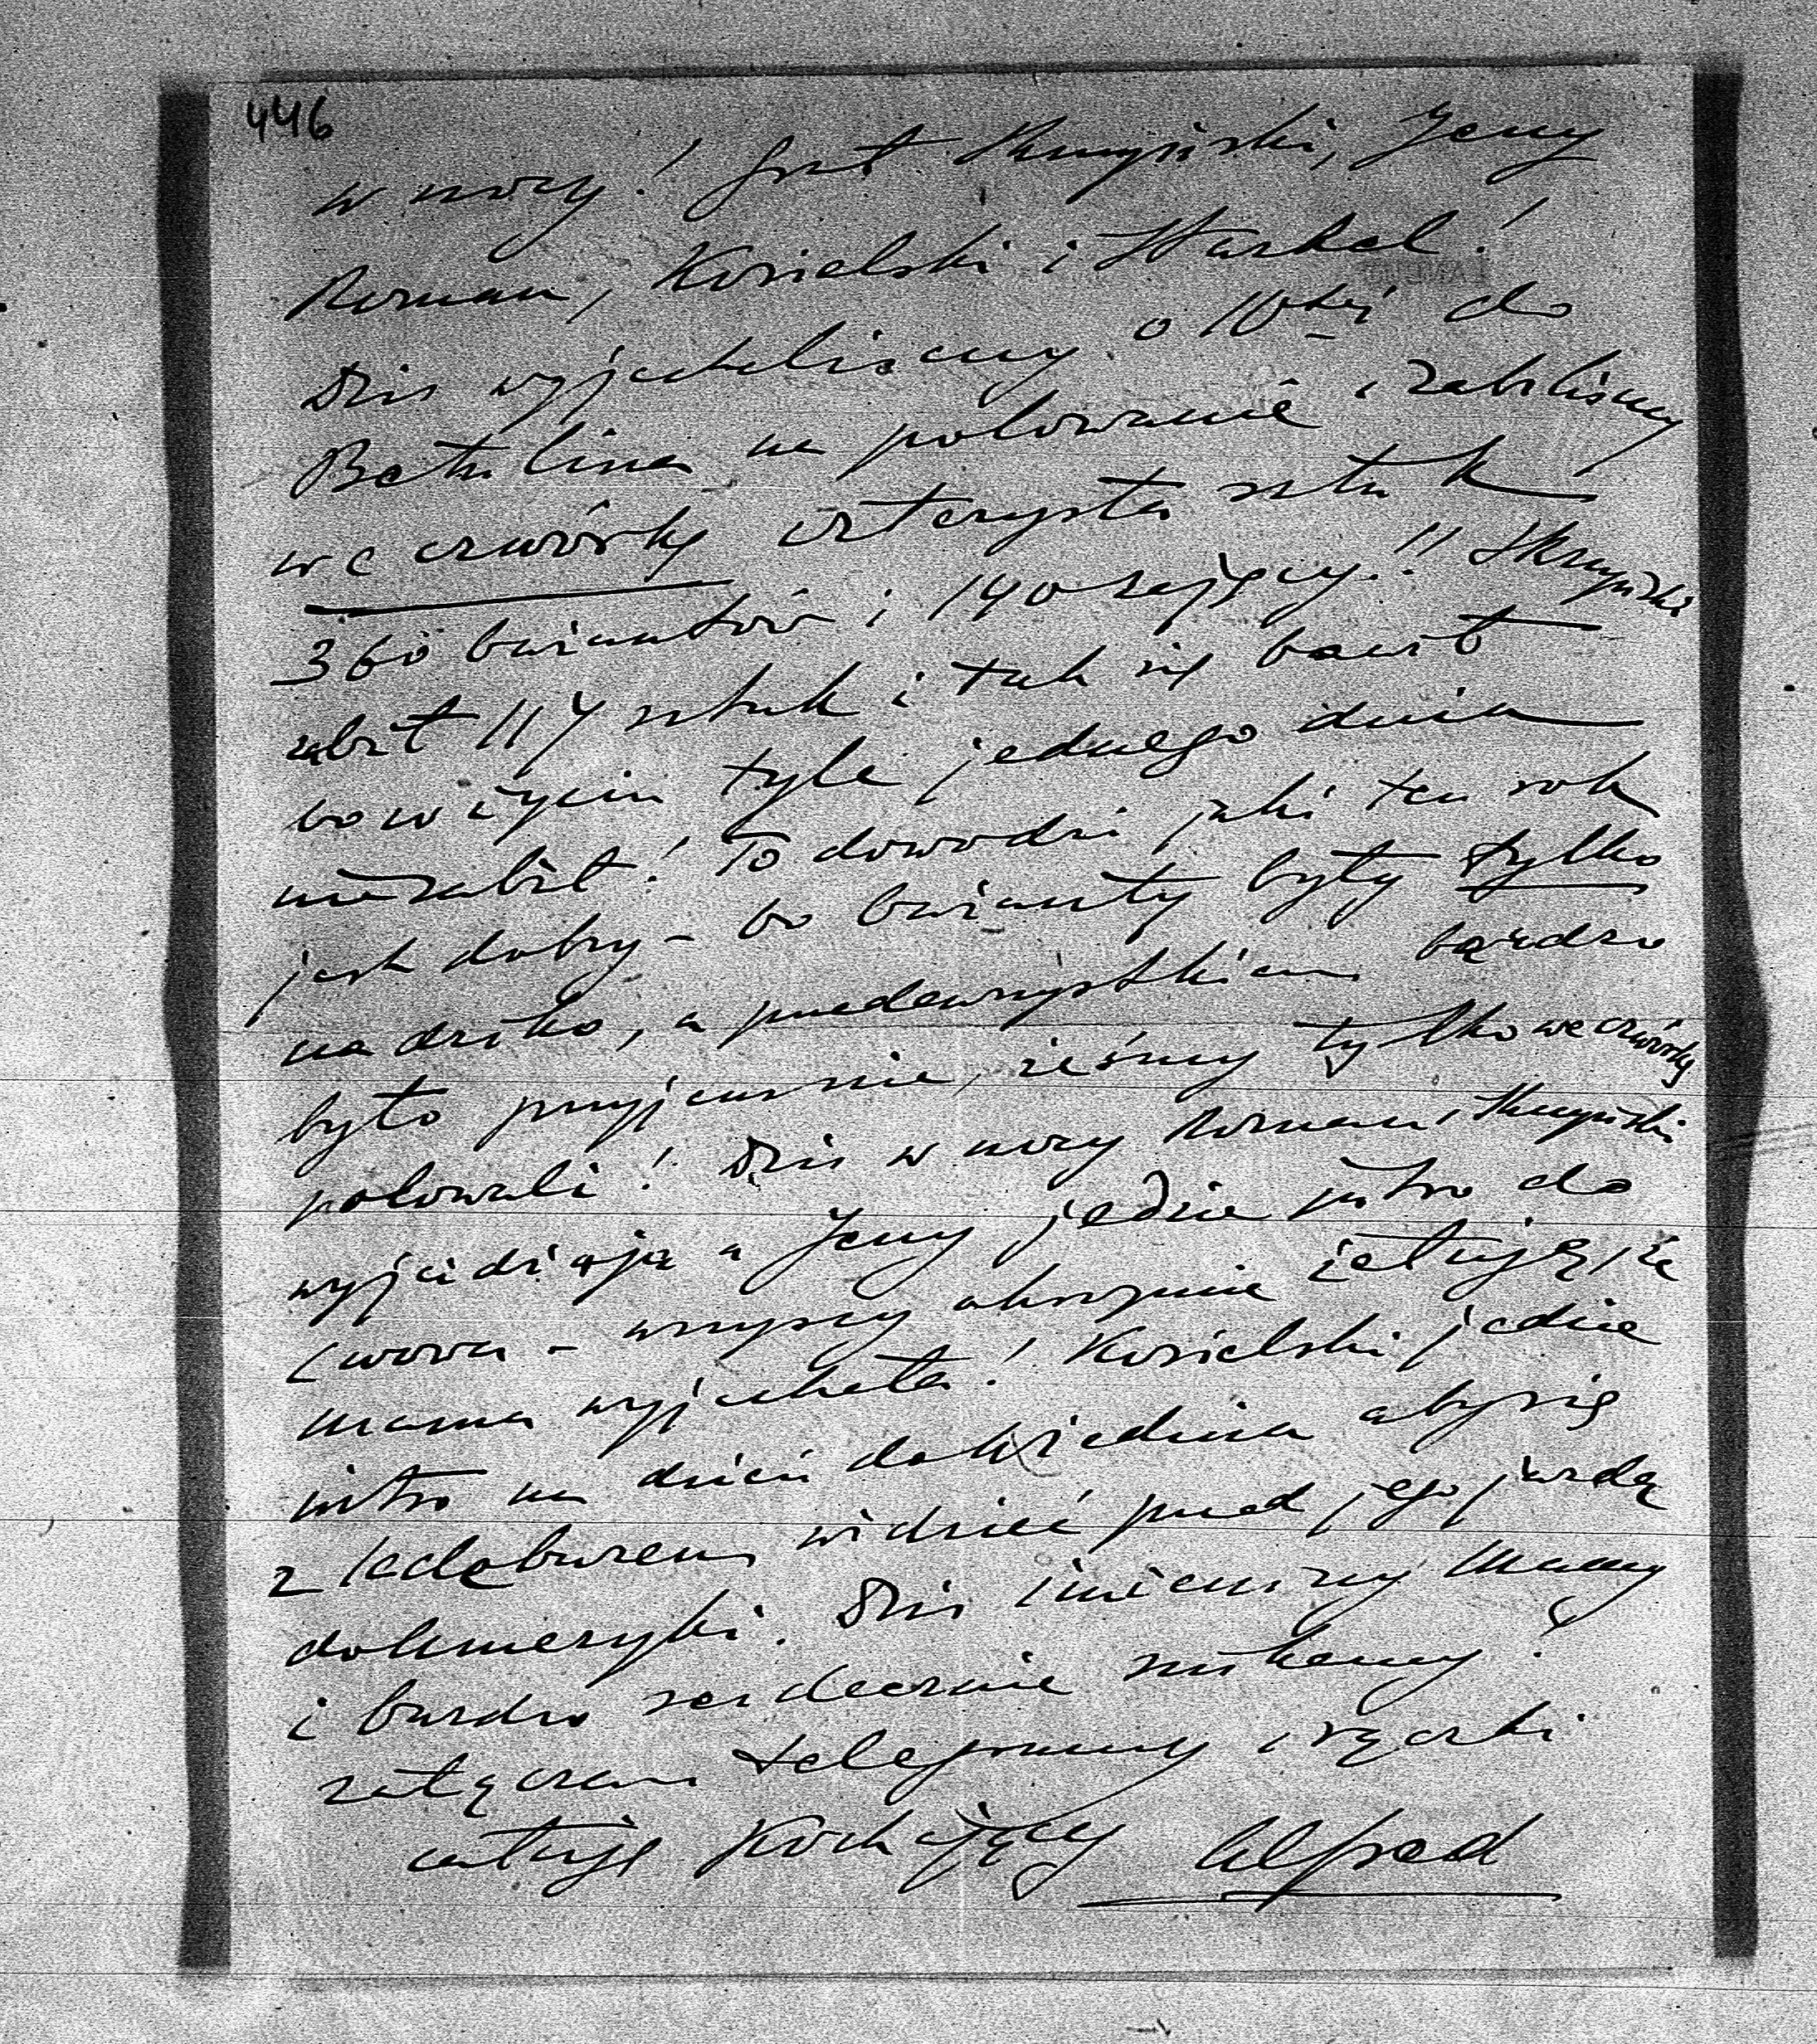 446
w nocy! Jest Skrzyński, Jerzy
Roman, Kosielski i Starkel!
Dziś wyjechaliśmy o 10tej do
Betulina na polowanie i zabiliśmy
we czwórkę czterysta sztuk
360 bażantów i 140 zajęcy!! Skrzyński
zabił 114 sztuk i tak się bawił
bo w życiu tyle jednego dnia
niezabił! To dowodzi jaki ten rok
jest dobry – bo bażanty były tylko
na dziko, a przedewszystkiem bardzo
było przyjemnie, żeśmy tylko we czwórkę
polowali! Dziś w nocy Roman i Skrzyński
wyjeżdżają a Jerzy jedzie jutro do
Lwowa – wszyscy okropnie żałują, że
mama wyjechała! Kosielski jedzie
jutro na dzień do Wiednia aby się
z widzieć przed jego jazdą
do Ameryki. Dziś imieniny Mamy
i bardzo serdecznie
załączam telegramy i rączki
całuję Kochający Alfred